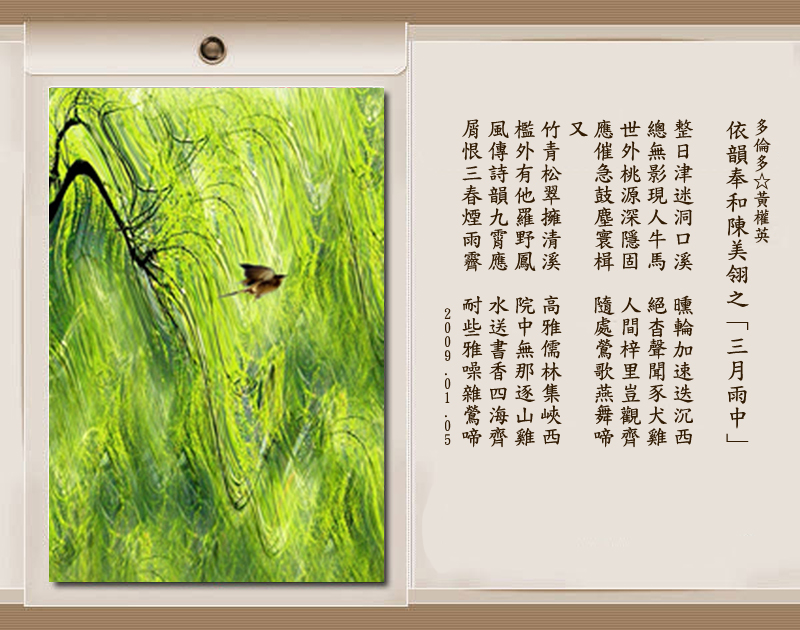 多倫多☆黃權英
依韻奉和陳美翎之「三月雨中」
整日津迷洞口溪 曛輪加速迭沉西
總無影現人牛馬 絕杳聲聞豕犬雞
世外桃源深隱固 人間梓里豈觀齊
應催急鼓塵寰楫 隨處鶯歌燕舞啼
又
竹青松翠擁清溪 高雅儒林集峽西
檻外有他羅野鳳 院中無那逐山雞
風傳詩韻九霄應 水送書香四海齊
屑恨三春煙雨霽 耐些雅噪雜鶯啼
2009.01.05